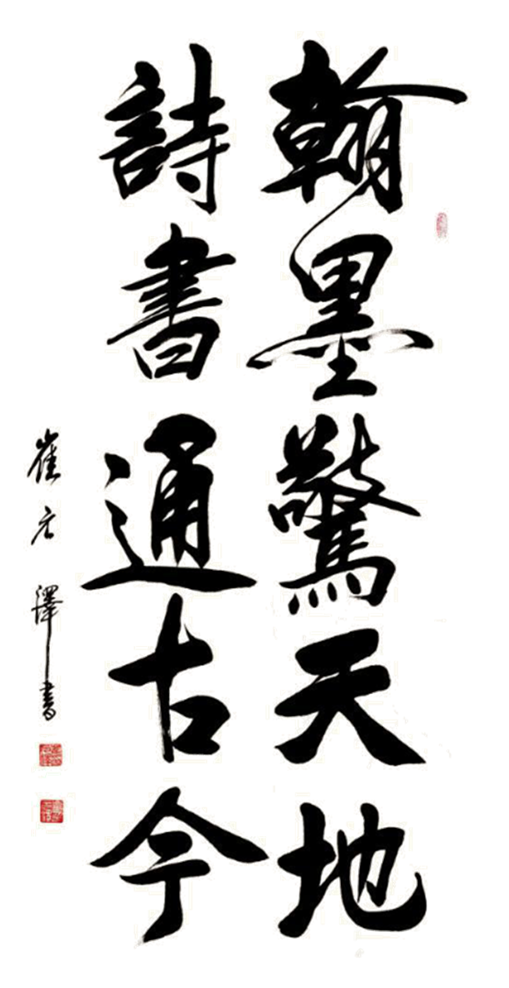 翰墨驚天地
詩書通古今
崔元澤書